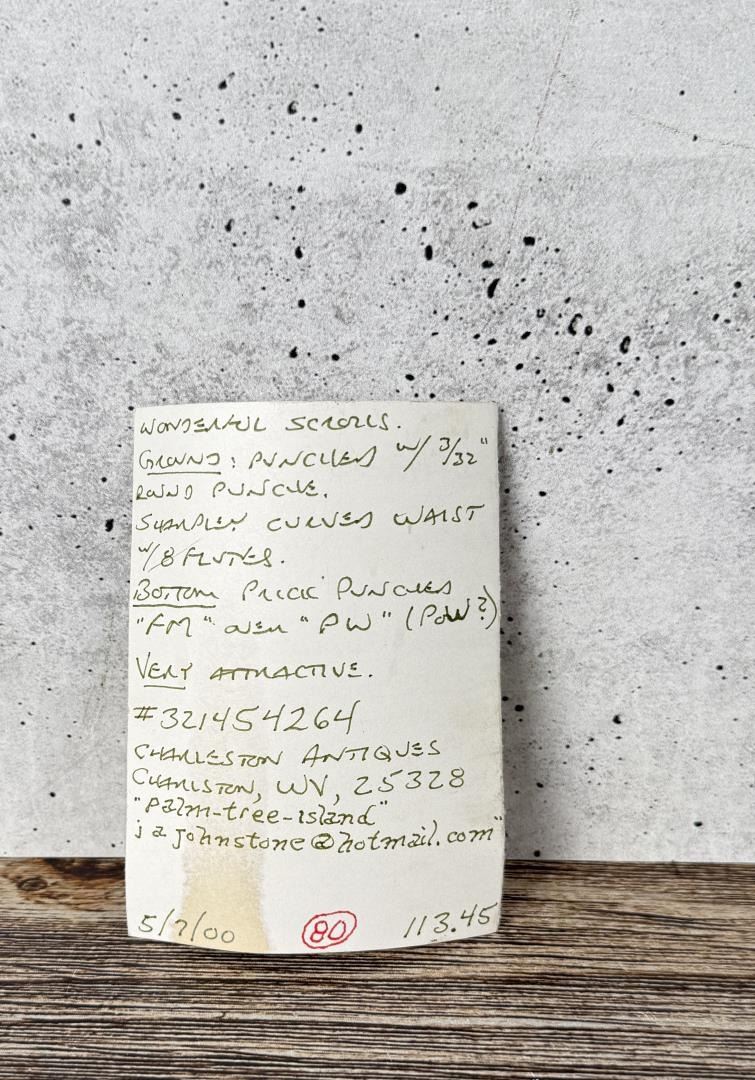 WONDERFUL SCROLLS.
GROUND: PUNCHED W/ 3/32"
ROUND PUNCH.
SHARPLY CURVED WAIST
W/8 FLUTES.
BOTTOM PRICK PUNCHED
"FM" OVER "PW" (POW?)
VERY ATTRACTIVE.
#321454264
CHARLESTON ANTIQUES
CHARLSTON, WV, 25328
"palm-tree-island"
jajohnstone@hotmail.com"
5/7/00 80 113.45